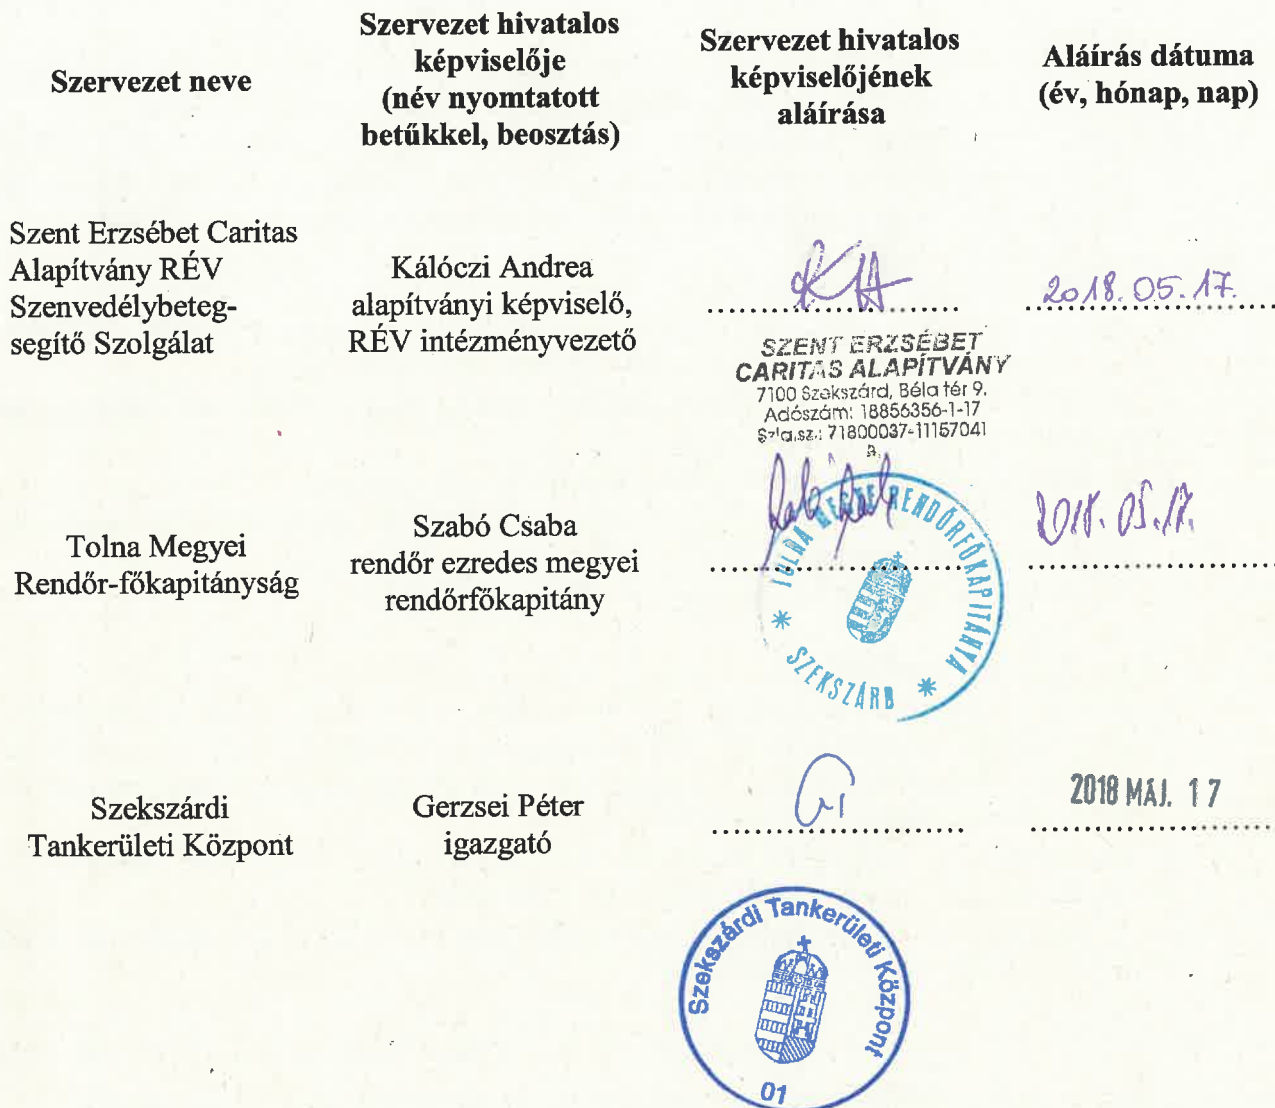 Szervezet neve
Szervezet hivatalos
képviselője
(név nyomtatott
betűkkel, beosztás)
Szervezet hivatalos
képviselőjének
aláírása
Aláírás dátuma
(év, hónap, nap)
Szent Erzsébet Caritas
Alapítvány RÉV
Szenvedélybeteg-
segítő Szolgálat
Kálóczi Andrea
alapítványi képviselő,
RÉV intézményvezető
KA
2018. 05. 17.
SZENT ERZSÉBET
CARITAS ALAPÍTVÁNY
7100 Szekszárd, Béla tér 9.
Adószám: 18856356-1-17
Szla.sz.: 71800037-11157041
Tolna Megyei
Rendőr-főkapitányság
Szabó Csaba
rendőr ezredes megyei
rendőrfőkapitány
TOLNA MEGYE RENDŐRFŐKAPITÁNYA
* SZEKSZÁRD *
2018. 05. 17.
Szekszárdi
Tankerületi Központ
Gerzsei Péter
igazgató
2018 MÁJ. 17
Szekszárdi Tankerületi Központ
01